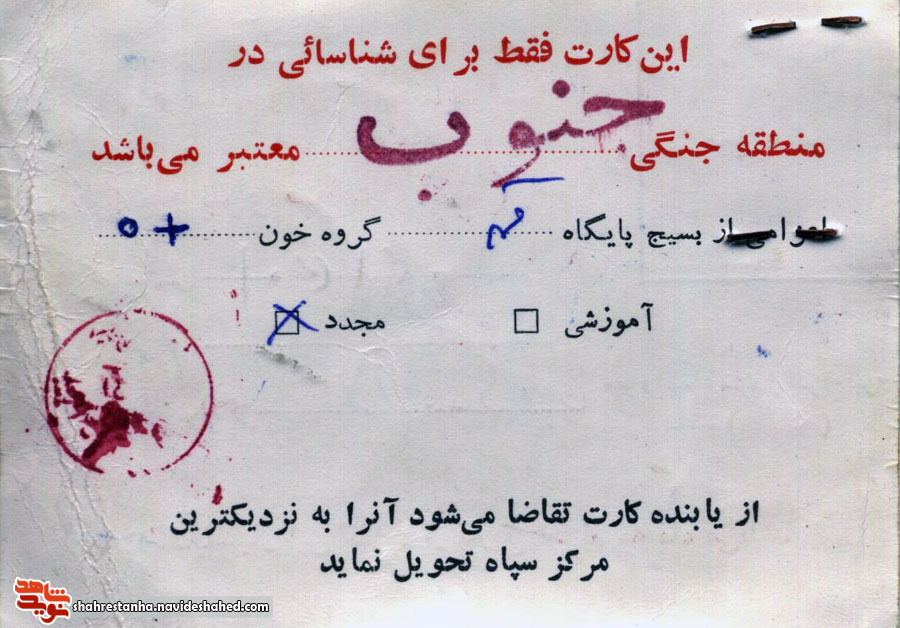 این کارت فقط برای شناسائی در
منطقه جنگی جنوب معتبر می‌باشد
اعزامی از بسیج پایگاه قم گروه خون O+
آموزشی □ مجدد ☒
از یابنده کارت تقاضا می‌شود آنرا به نزدیکترین
مرکز سپاه تحویل نماید
شاهد
نوید
shahrestanha.navideshahed.com